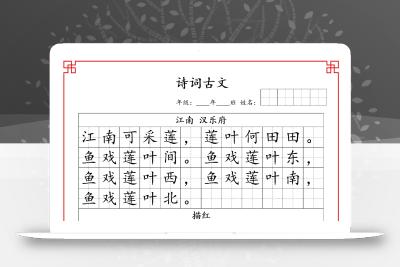 诗词古文
年级：____年____班 姓名：
江南 汉乐府
江南可采莲，莲叶何田田。
鱼戏莲叶间。鱼戏莲叶东，
鱼戏莲叶西，鱼戏莲叶南，
鱼戏莲叶北。
描红